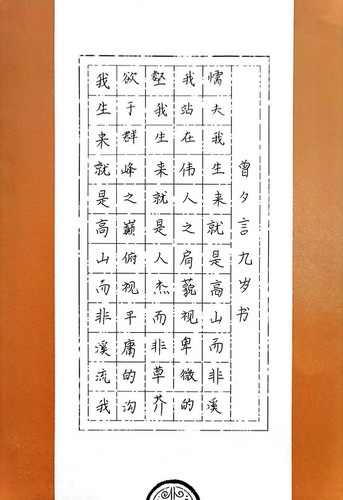 我生来就是高山而非溪流我
欲于群峰之巅俯视平庸的沟
壑我生来就是人杰而非草芥
我站在伟人之肩藐视卑微的
懦夫我生来就是高山而非溪
曾夕言九岁书